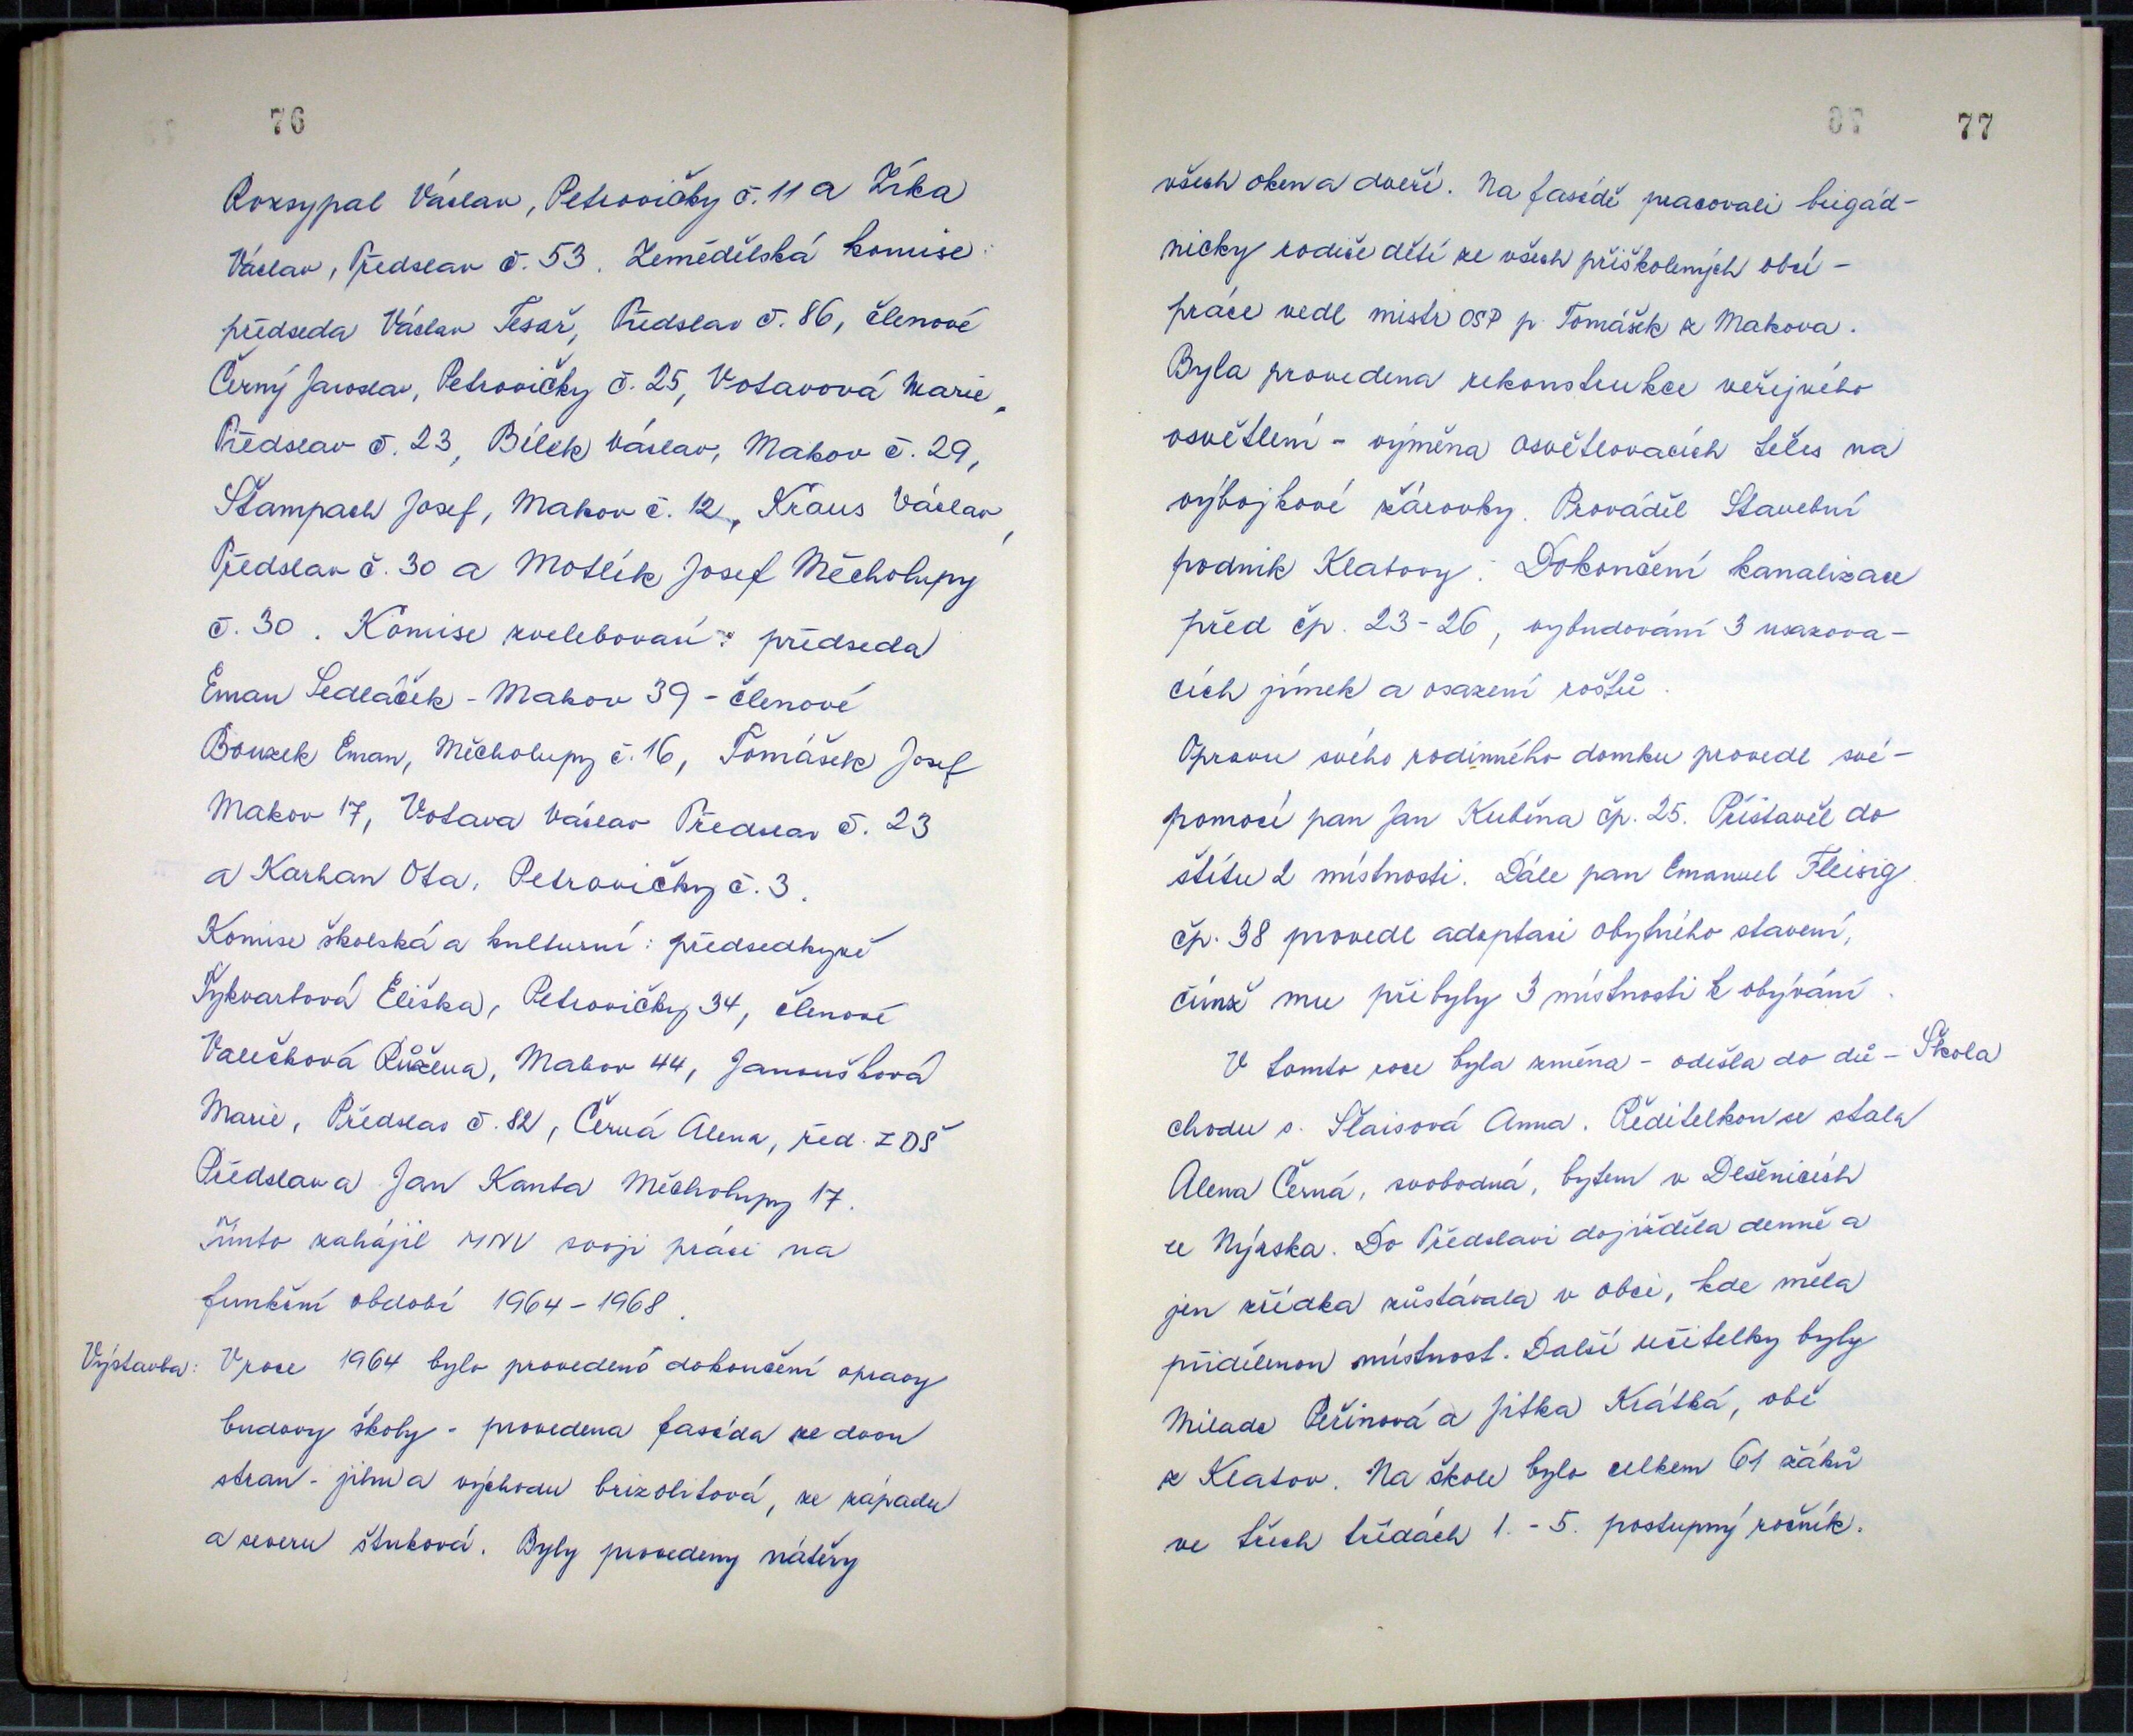 76
Rozsypal Václav, Petrovičky č. 11 a Zíka
Václav, Předslav č. 53. Zemědělská komise:
předseda Václav Tesař, Předslav č. 86, členové
Černý Jaroslav, Petrovičky č. 25, Votavová Marie,
Předslav č. 23, Bílek Václav, Makov č. 29,
Štampach Josef, Makov č. 12, Kraus Václav,
Předslav č. 30 a Motlík Josef Měcholupy
č. 30. Komise zvelebovaní: předseda
Eman Sedláček - Makov 39 - členové
Bouzek Eman, Měcholupy č. 16, Tomášek Josef
Makov 17, Votava Václav Předslav č. 23
a Karhan Ota, Petrovičky č. 3.
Komise školská a kulturní: předsedkyně
Tykvartová Eliška, Petrovičky 34, členové
Valečková Růžena, Makov 44, Janoušková
Marie, Předslav č. 82, Černá Alena, řed. ZDŠ
Předslav a Jan Kanta Měcholupy 17.
Tímto zahájil MNV svoji práci na
funkční období 1964 - 1968.
Výstavba: V roce 1964 bylo provedenó dokončení opravy
budovy školy - provedena fasáda ze dvou
stran - jihu a východu brizolitová, ze západu
a severu štuková. Byly provedeny nátěry
77
všech oken a dveří. Na fasádě pracovali brigád-
nicky rodiče dětí ze všech přiškolených obcí -
práce vedl mistr OSP p. Tomášek z Makova.
Byla provedena rekonstrukce veřejného
osvětlení - výměna osvětlovacích těles na
výbojkové žárovky. Prováděl Stavební
podnik Klatovy. Dokončení kanalizace
před čp. 23-26, vybudování 3 usazova-
cích jímek a osazení roštů.
Opravu svého rodinného domku provedl své-
pomocí pan Jan Kuběna čp. 25. Přistavěl do
štítu 2 místnosti. Dále pan Emanuel Fleisig
čp. 38 provedl adaptaci obytného stavení,
čímž mu přibyly 3 místnosti k obývání.
V tomto roce byla změna - odešla do dů- Škola
chodu s. Slaisová Anna. Ředitelkou se stala
Alena Černá, svobodná, bytem v Dešenicích
u Nýrska. Do Předslavi dojížděla denně a
jen zřídka zůstávala v obci, kde měla
přidělenou místnost. Další učitelky byly
Milada Peřinová a Jitka Krátká, obě
z Klatov. Na škole bylo celkem 61 žáků
ve třech třídách 1. - 5. postupný ročník.